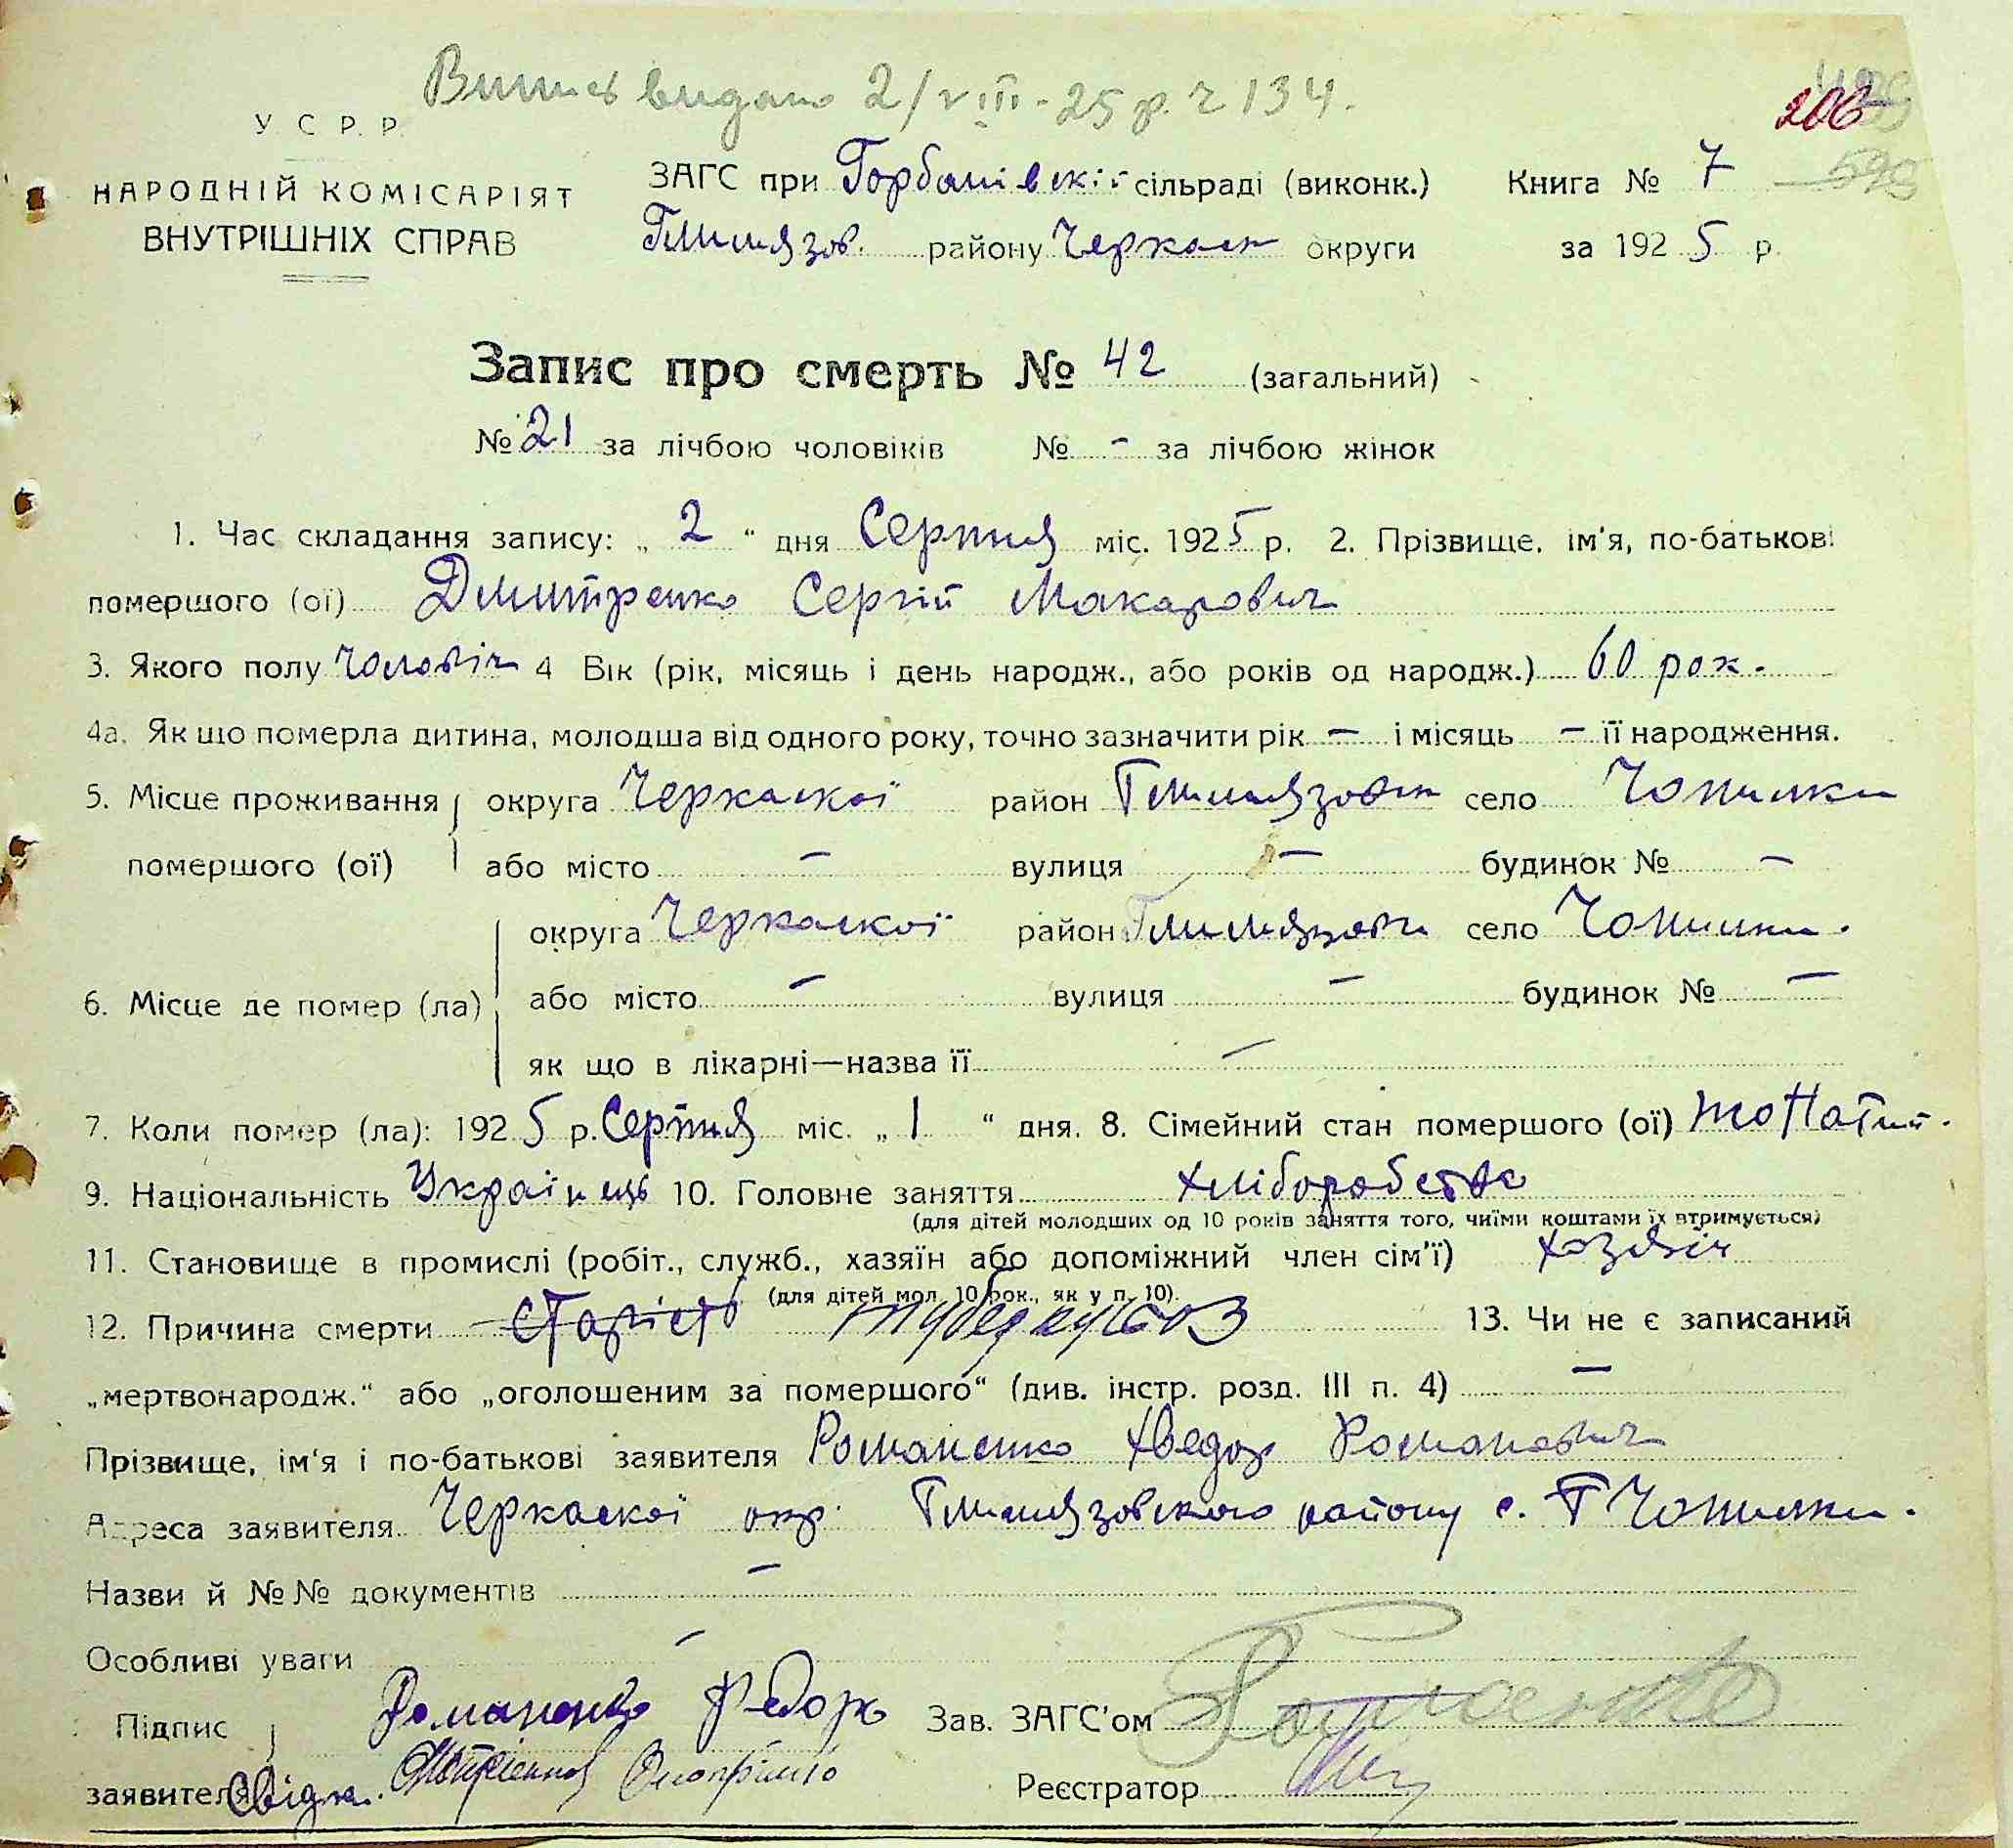 Випись видано 2/VIII-25 р. ч 134.
206
У С Р. Р.
ЗАГС при Горбанівскій сільраді (виконк.) Книга № 7
598
НАРОДНІЙ КОМІСАРІЯТ
ВНУТРІШНІХ СПРАВ
Гельмязов. району Черкаск округи за 1925 р.
Запис про смерть № 42 (загальний)
№ 21 за лічбою чоловіків № - за лічбою жінок
1. Час складання запису: „ 2 “ дня Серпня міс. 1925 р. 2. Прізвище, ім'я, по-батькові
помершого (ої) Дмитренко Сергій Макарович
3. Якого полу чоловіч 4 Вік (рік, місяць і день народж., або років од народж.) 60 рок.
4а. Як що померла дитина, молодша від одного року, точно зазначити рік — і місяць — її народження.
5. Місце проживання округа Черкаскої район Гельмязовск село Чопилки
помершого (ої) або місто — вулиця — будинок № —
округа Черкаскої район Гельмязовск село Чопилки.
6. Місце де помер (ла) або місто — вулиця — будинок № —
як що в лікарні—назва її —
7. Коли помер (ла): 1925 р. Серпня міс. „ 1 “ дня. 8. Сімейний стан помершого (ої) жонатий.
9. Національність Українець 10. Головне заняття хліборобство
(для дітей молодших од 10 років заняття того, чиїми коштами їх втримується)
11. Становище в промислі (робіт., служб., хазяїн або допоміжний член сім'ї) хозяїн
(для дітей мол. 10 рок., як у п. 10).
12. Причина смерти старість туберкульоз 13. Чи не є записаний
„мертвонародж.“ або „оголошеним за помершого“ (див. інстр. розд. III п. 4) —
Прізвище, ім'я і по-батькові заявителя Романенко Хведор Романович
Адреса заявителя Черкаскої окр. Гельмязовского району с. Чопилки.
Назви й №№ документів —
Особливі уваги —
Підпис Романенко Федорь Зав. ЗАГС'ом
заявителя Свідк. Реєстратор